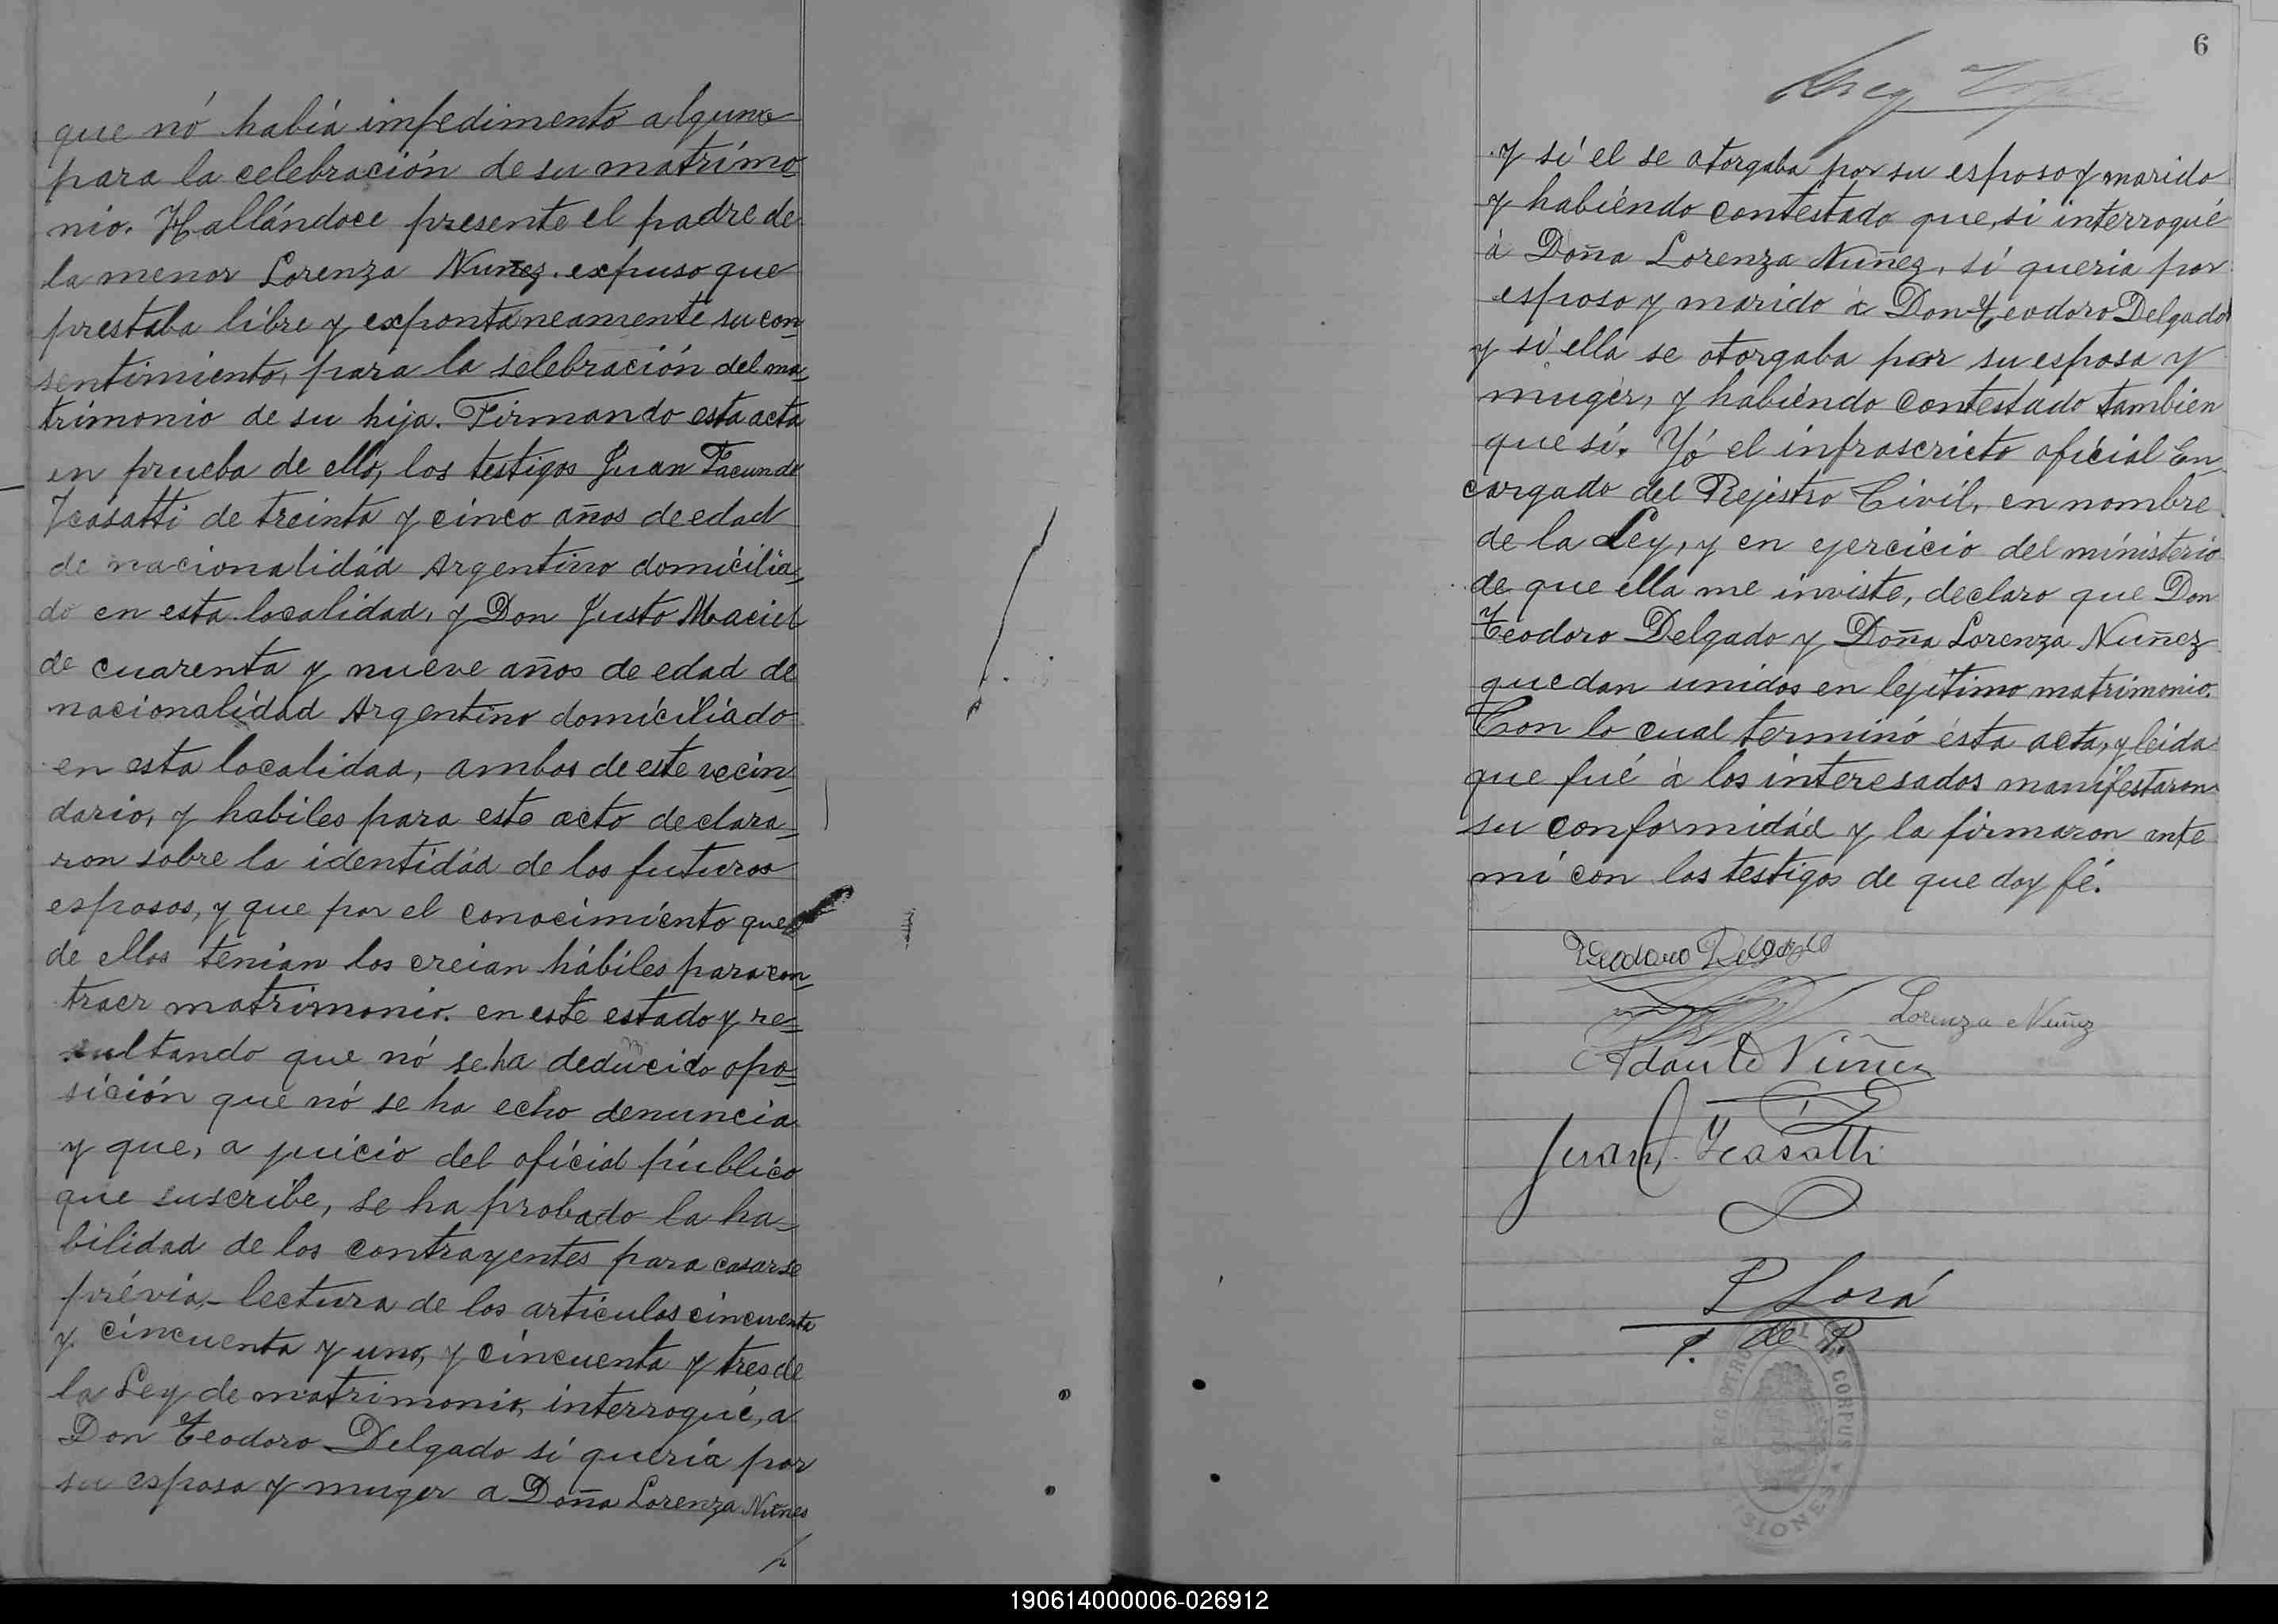 que nó había impedimento alguno
para la celebración de su matrimo
nio. Hallándoce presente el padre de
la menor Lorenza Nuñez. expuso que
prestaba libre y expontáneamente su con=
sentimiento, para la selebración del ma=
trimonio de su hija. Firmando esta acta
en prueba de ello, los testigos Juan Facundo
Ycasatti de treinta y cinco años de edad
de nacionalidád Argentino domicilia=
do en esta localidad, y Don Justo Maciel
de cuarenta y nueve años de edad de
nacionalidad Argentino domiciliado
en esta localidad, ambos de este vecin=
dario, y habiles para este acto declara=
ron sobre la identidád de los futuros
esposos, y que por el conocimiento que
de ellos tenian los creian hábiles para con=
traer matrimonio. en este estado y re=
sultando que nó se ha deducido opo=
sición que nó se ha echo denuncia
y que, a juicio del oficial público
que suscribe, se ha probado la ha=
bilidad de los contrayentes para casarse
prévia,- lectura de los artículos cincuenta
y cincuenta y uno, y cincuenta y tres de
la Ley de matrimonio, interrogué, a
Don Teodoro Delgado si quería por
su esposa y muger a Doña Lorenza Nuñes
6
y si el se otorgaba por su esposo y marido
y habiéndo contestado que, si interrogué
á Doña Lorenza Nuñez, si queria por
esposo y marido á Don Teodoro Delgado
y si ella se otorgaba por su esposa y
muger, y habiéndo contestado tambien
que si. Yó el infrascricto oficial En
cargado del Rejistro Civil, en nombre
de la Ley, y en ejercicio del ministerio
de que ella me inviste, declaro que Don
Teodoro Delgado y Doña Lorenza Nuñez
quedan unidos en lejítimo matrimonio.
Con lo cual terminó ésta acta, y leida
que fué á los interesados manifestaron
su conformidád y la firmaron ante
mi con los testigos de que doy fé.
Teodoro Delgado
Lorenza Nuñez
Nuñez
Juan F. Ycasatti
P Lorá
J. de P.
REGISTRO CIVIL DE CORPUS
MISIONES
190614000006-026912